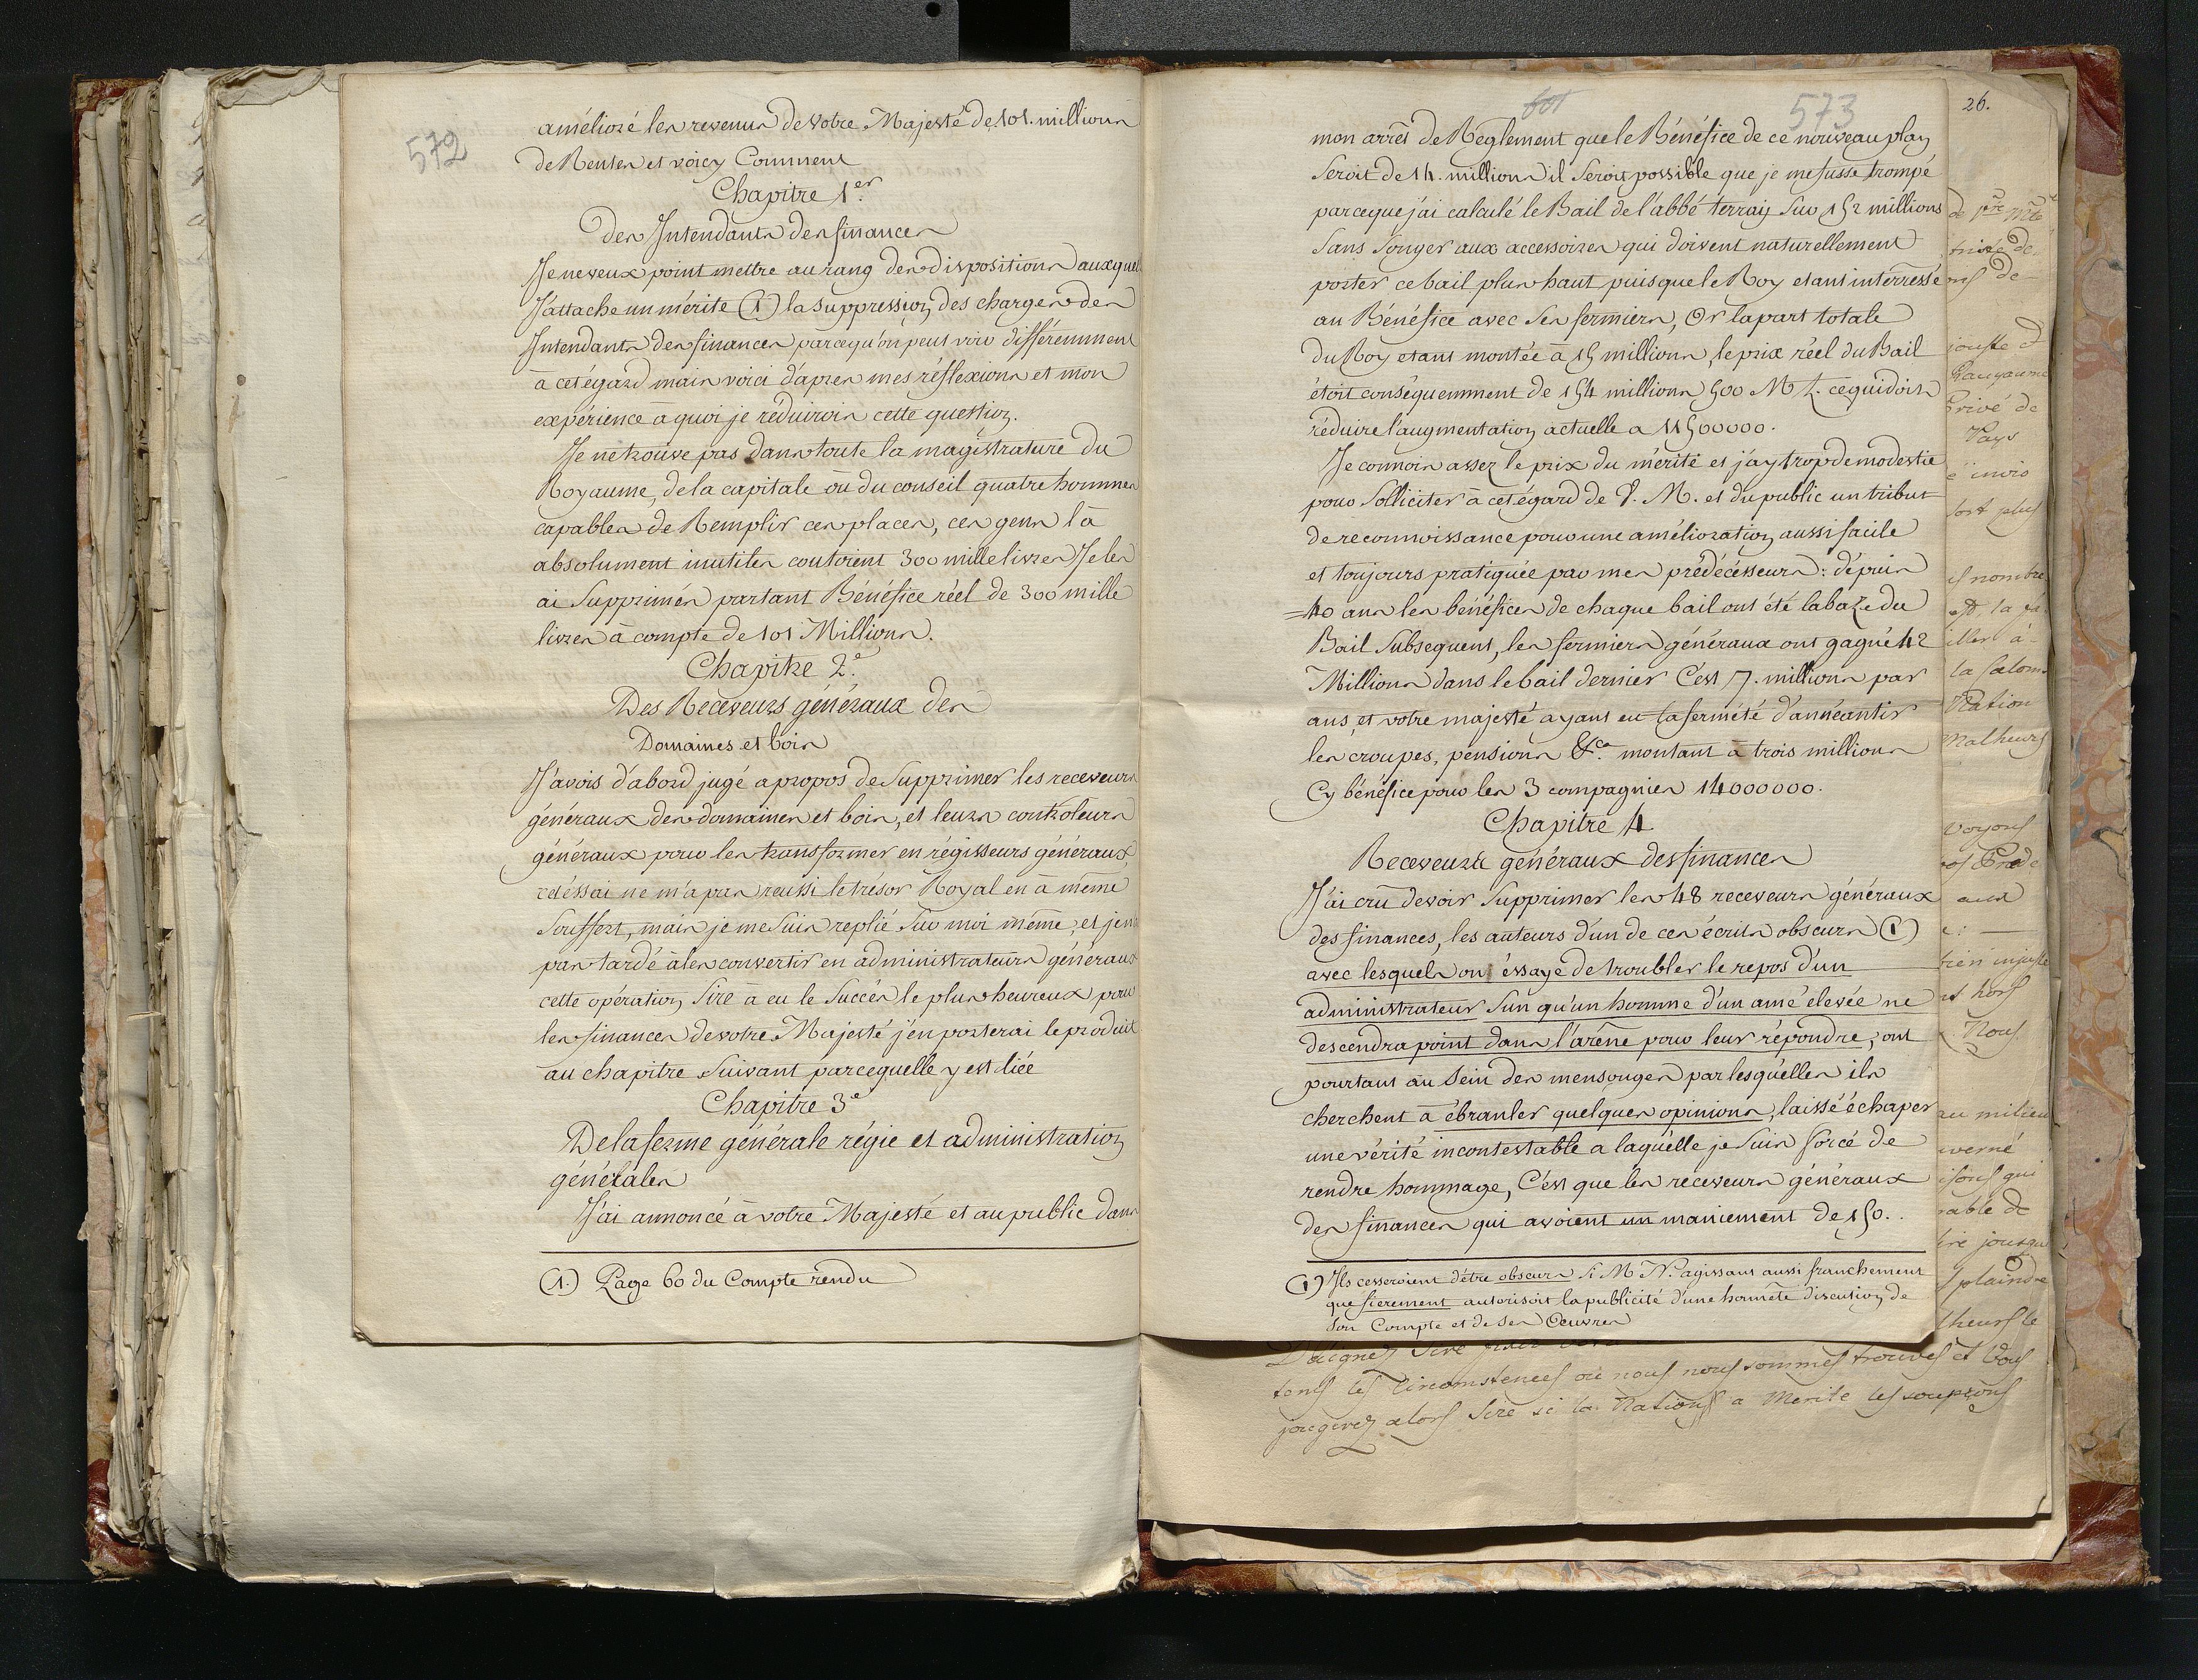 572
amélioré les revenus de votre Majesté de 101. millions
de Rentes et voicy Comment
Chapitre 1.er
Des Intendants des finances
Je ne veux point mettre au rang des dispositions auxquel
J'attache un mérite (1) la suppression des charges des
Intendants des finances parcequ'on peut voir différemment
à cet égard mais voici d'après mes réflexions et mon
expérience à quoi je réduirois cette question.
Je ne trouve pas dans toute la magistrature du
Royaume, de la capitale où du conseil quatre hommes
capables de Remplir ces places, ces gens là
absolument inutiles coutoient 300 mille livres Je les
ai Supprimés partant Bénéfice réel de 300 mille
livres à compte de 101 Millions.
Chapitre 2.e
Des Receveurs généraux des
Domaines et bois
J'avois d'abord jugé apropos de Supprimer les receveurs
généraux des domaines et bois, et leurs controleurs
généraux pour les transformer en régisseurs généraux,
cet éssai ne m'a pas reussi le trésor Royal en à même
Souffert, mais je me suis replié sur moi même, et jen
pas tardé à les convertir en administrateurs généraux
cette opération Sire à eu le Succès le plus heureux pour
les finances de votre Majesté j'en porterai le produit
au chapitre Suivant parcequelle y est liée
Chapitre 3.e
De la ferme générale régie et administration
générales
J'ai annoncé à votre Majesté et au public dans
(1.) Page 60 du Compte rendu
601
573
26.
mon arrêt de Réglement que le Bénéfice de ce nouveau plan
Seroit de 14. millions il Seroit possible que je me fusse trompé
parceque j'ai calculé le Bail de l'abbé terray Sur 152 millions
Sans Songer aux accessoires qui doivent naturellement
porter ce bail plus haut puisque le Roy etant interressé
au Bénéfice avec Ses fermiers, Or la part totale
du Roy etant montée à 15 millions, le prix réel du Bail
étoit conséquemment de 154 millions 500 M L. ce qui doit
réduire l'augmentation actuelle a 11500000.
Je connois assez le prix du mérite et j'ay trop de modestie
pour Solliciter à cet égard de V. M. et du public un tribut
de reconnoissance pour une amélioration aussi facile
et toujours pratiquée par mes prédécésseurs : dépuis
40 ans les bénéfices de chaque bail ont été la baze du
Bail Subsequent, les fermiers généraux ont gagné 42
Millions dans le bail dernier C'est 7. millions par
ans, et votre majesté ayant eu la fermété d'annéantir
les croupes, pensions &.ca montant à trois millions
Cy bénéfice pour les 3 compagnies 14000000.
Chapitre 4
Receveurs généraux des finances
J'ai crû devoir Supprimer les 48 receveurs généraux
des finances, les auteurs d'un de ces écrits obscurs (1)
avec lesquels on éssaye de troubler le repos d'un
administrateur Sun qu'un homme d'un amé elevée ne
descendra point dans l'arêne pour leur répondre, ont
pourtant au Sein des mensonges par lesquelles ils
cherchent à ébranler quelques opinions, laissé échaper
une vérité incontestable a laquélle je suis forcé de
rendre hommage, C'est que les réceveurs généraux
des finances qui avoient un maniement de 150.
(1) Ils cesseroient d'être obscurs Si M N. agissant aussi franchement
que fierement autorisoit la publicité d'une honnête discution de
Son Compte et de Ses Oeuvres
Daignez Sire
tems les Circonstences où nous nous sommes trouvés et Vous
jugerez alors Sire si la Nations a Merité les soupçons